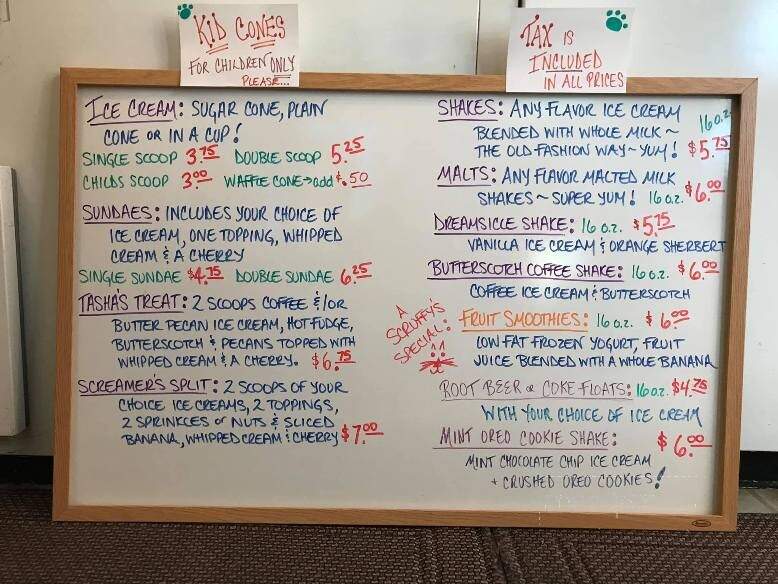 KID CONES
FOR CHILDREN ONLY
PLEASE...
TAX IS
INCLUDED
IN ALL PRICES
ICE CREAM: SUGAR CONE, PLAIN
CONE OR IN A CUP!
SINGLE SCOOP 3.75 DOUBLE SCOOP 5.25
CHILDS SCOOP 3.00 WAFFLE CONE → add $.50
SUNDAES: INCLUDES YOUR CHOICE OF
ICE CREAM, ONE TOPPING, WHIPPED
CREAM & A CHERRY
SINGLE SUNDAE $4.75 DOUBLE SUNDAE 6.25
TASHA'S TREAT: 2 SCOOPS COFFEE &/OR
BUTTER PECAN ICE CREAM, HOT FUDGE,
BUTTERSCOTCH & PECANS TOPPED WITH
WHIPPED CREAM & A CHERRY. $6.75
SCREAMER'S SPLIT: 2 SCOOPS OF YOUR
CHOICE ICE CREAMS, 2 TOPPINGS,
2 SPRINKLES or NUTS & SLICED
BANANA, WHIPPED CREAM & CHERRY $7.00
A
SCRUFFY'S
SPECIAL:
SHAKES: ANY FLAVOR ICE CREAM
BLENDED WITH WHOLE MILK ~ 16 oz.
THE OLD-FASHION WAY ~ YUM! $5.75
MALTS: ANY FLAVOR MALTED MILK
SHAKES ~ SUPER YUM! 16 oz. $6.00
DREAMSICLE SHAKE: 16 oz. $5.75
VANILLA ICE CREAM & ORANGE SHERBERT
BUTTERSCOTCH COFFEE SHAKE: 16 oz. $6.00
COFFEE ICE CREAM & BUTTERSCOTCH
FRUIT SMOOTHIES: 16 oz. $6.00
LOW FAT FROZEN YOGURT, FRUIT
JUICE BLENDED WITH A WHOLE BANANA
ROOT BEER or COKE FLOATS: 16 oz. $4.75
WITH YOUR CHOICE OF ICE CREAM
MINT OREO COOKIE SHAKE: $6.00
MINT CHOCOLATE CHIP ICE CREAM
+ CRUSHED OREO COOKIES!